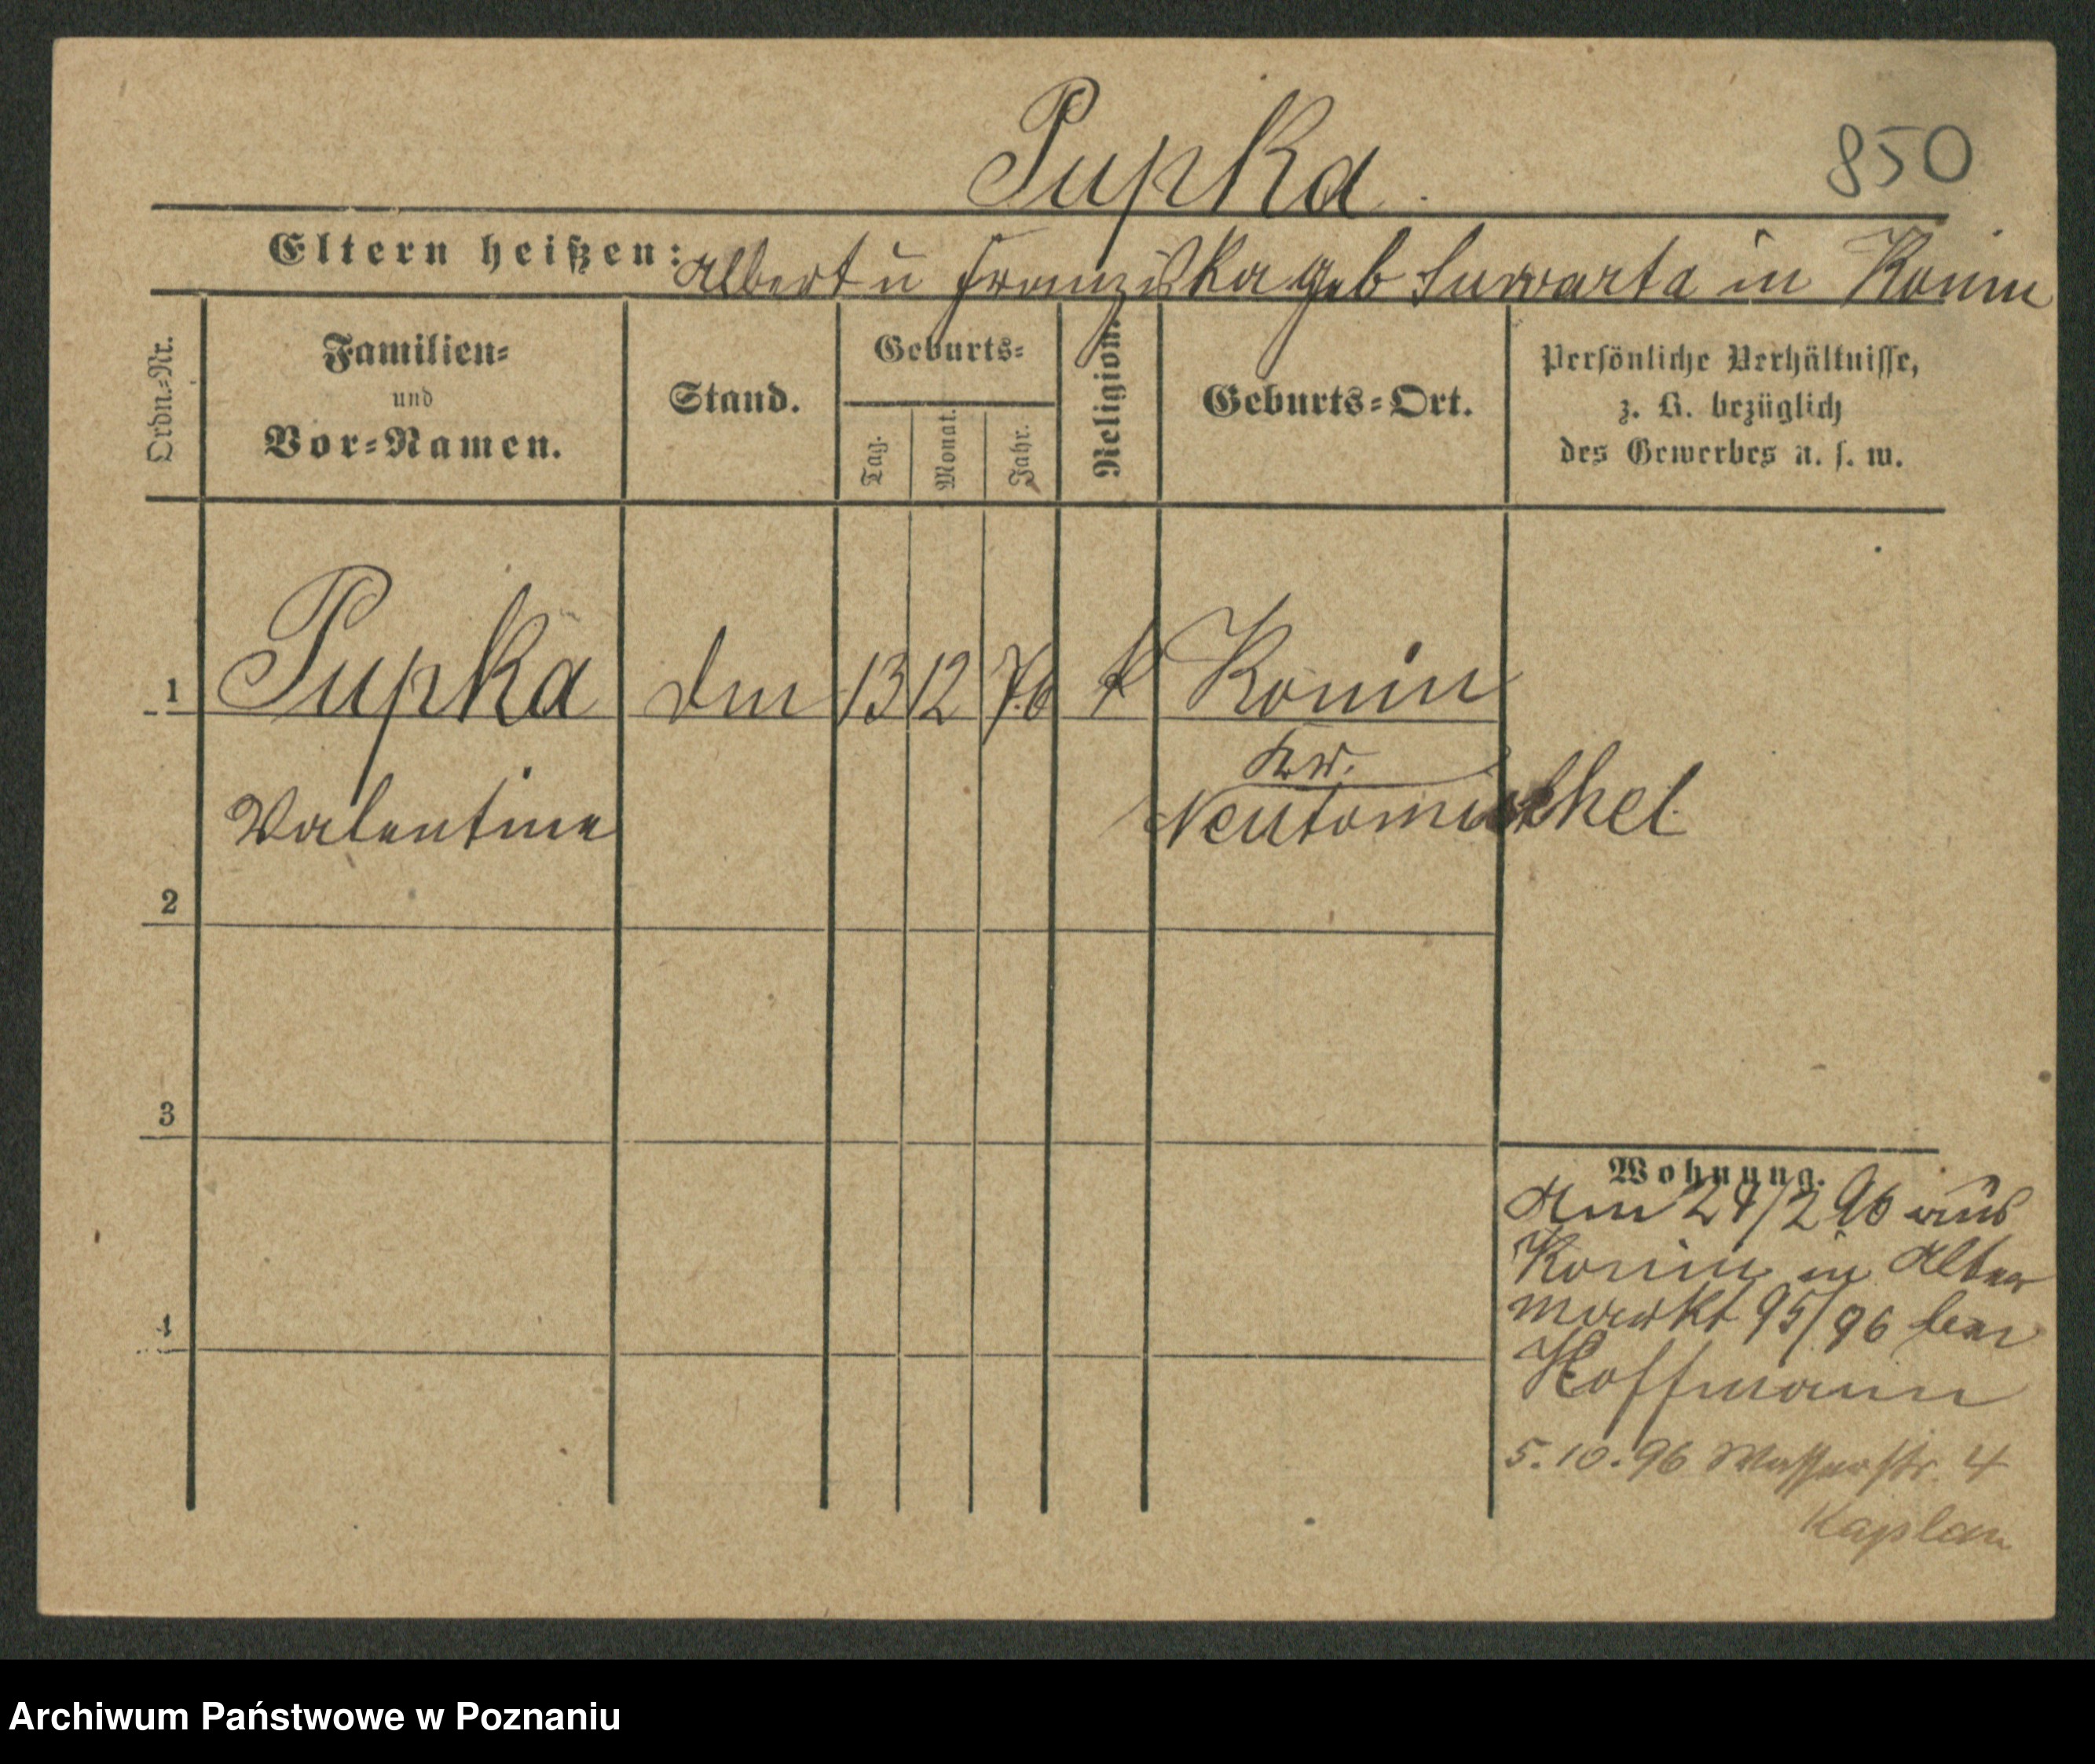 Pupka
850
Eltern heißen: Albert u Franziska geb Suwarta in Konin
Ordn.-Nr.
Familien-
und
Vor-Namen.
Stand.
Geburts-
Tag.
Monat.
Jahr.
Religion.
Geburts-Ort.
Persönliche Verhältnisse,
z. B. bezüglich
des Gewerbes u. s. w.
1 Pupka 13 12 76 k Konin
Valentine
Neutomischel
2
3
4
Wohnung.
Am 24/2 96 aus
Konin in Alter
markt 95/96 bei
Hoffmann
5.10.96 Wasserstr. 4
Kaplan
Archiwum Państwowe w Poznaniu